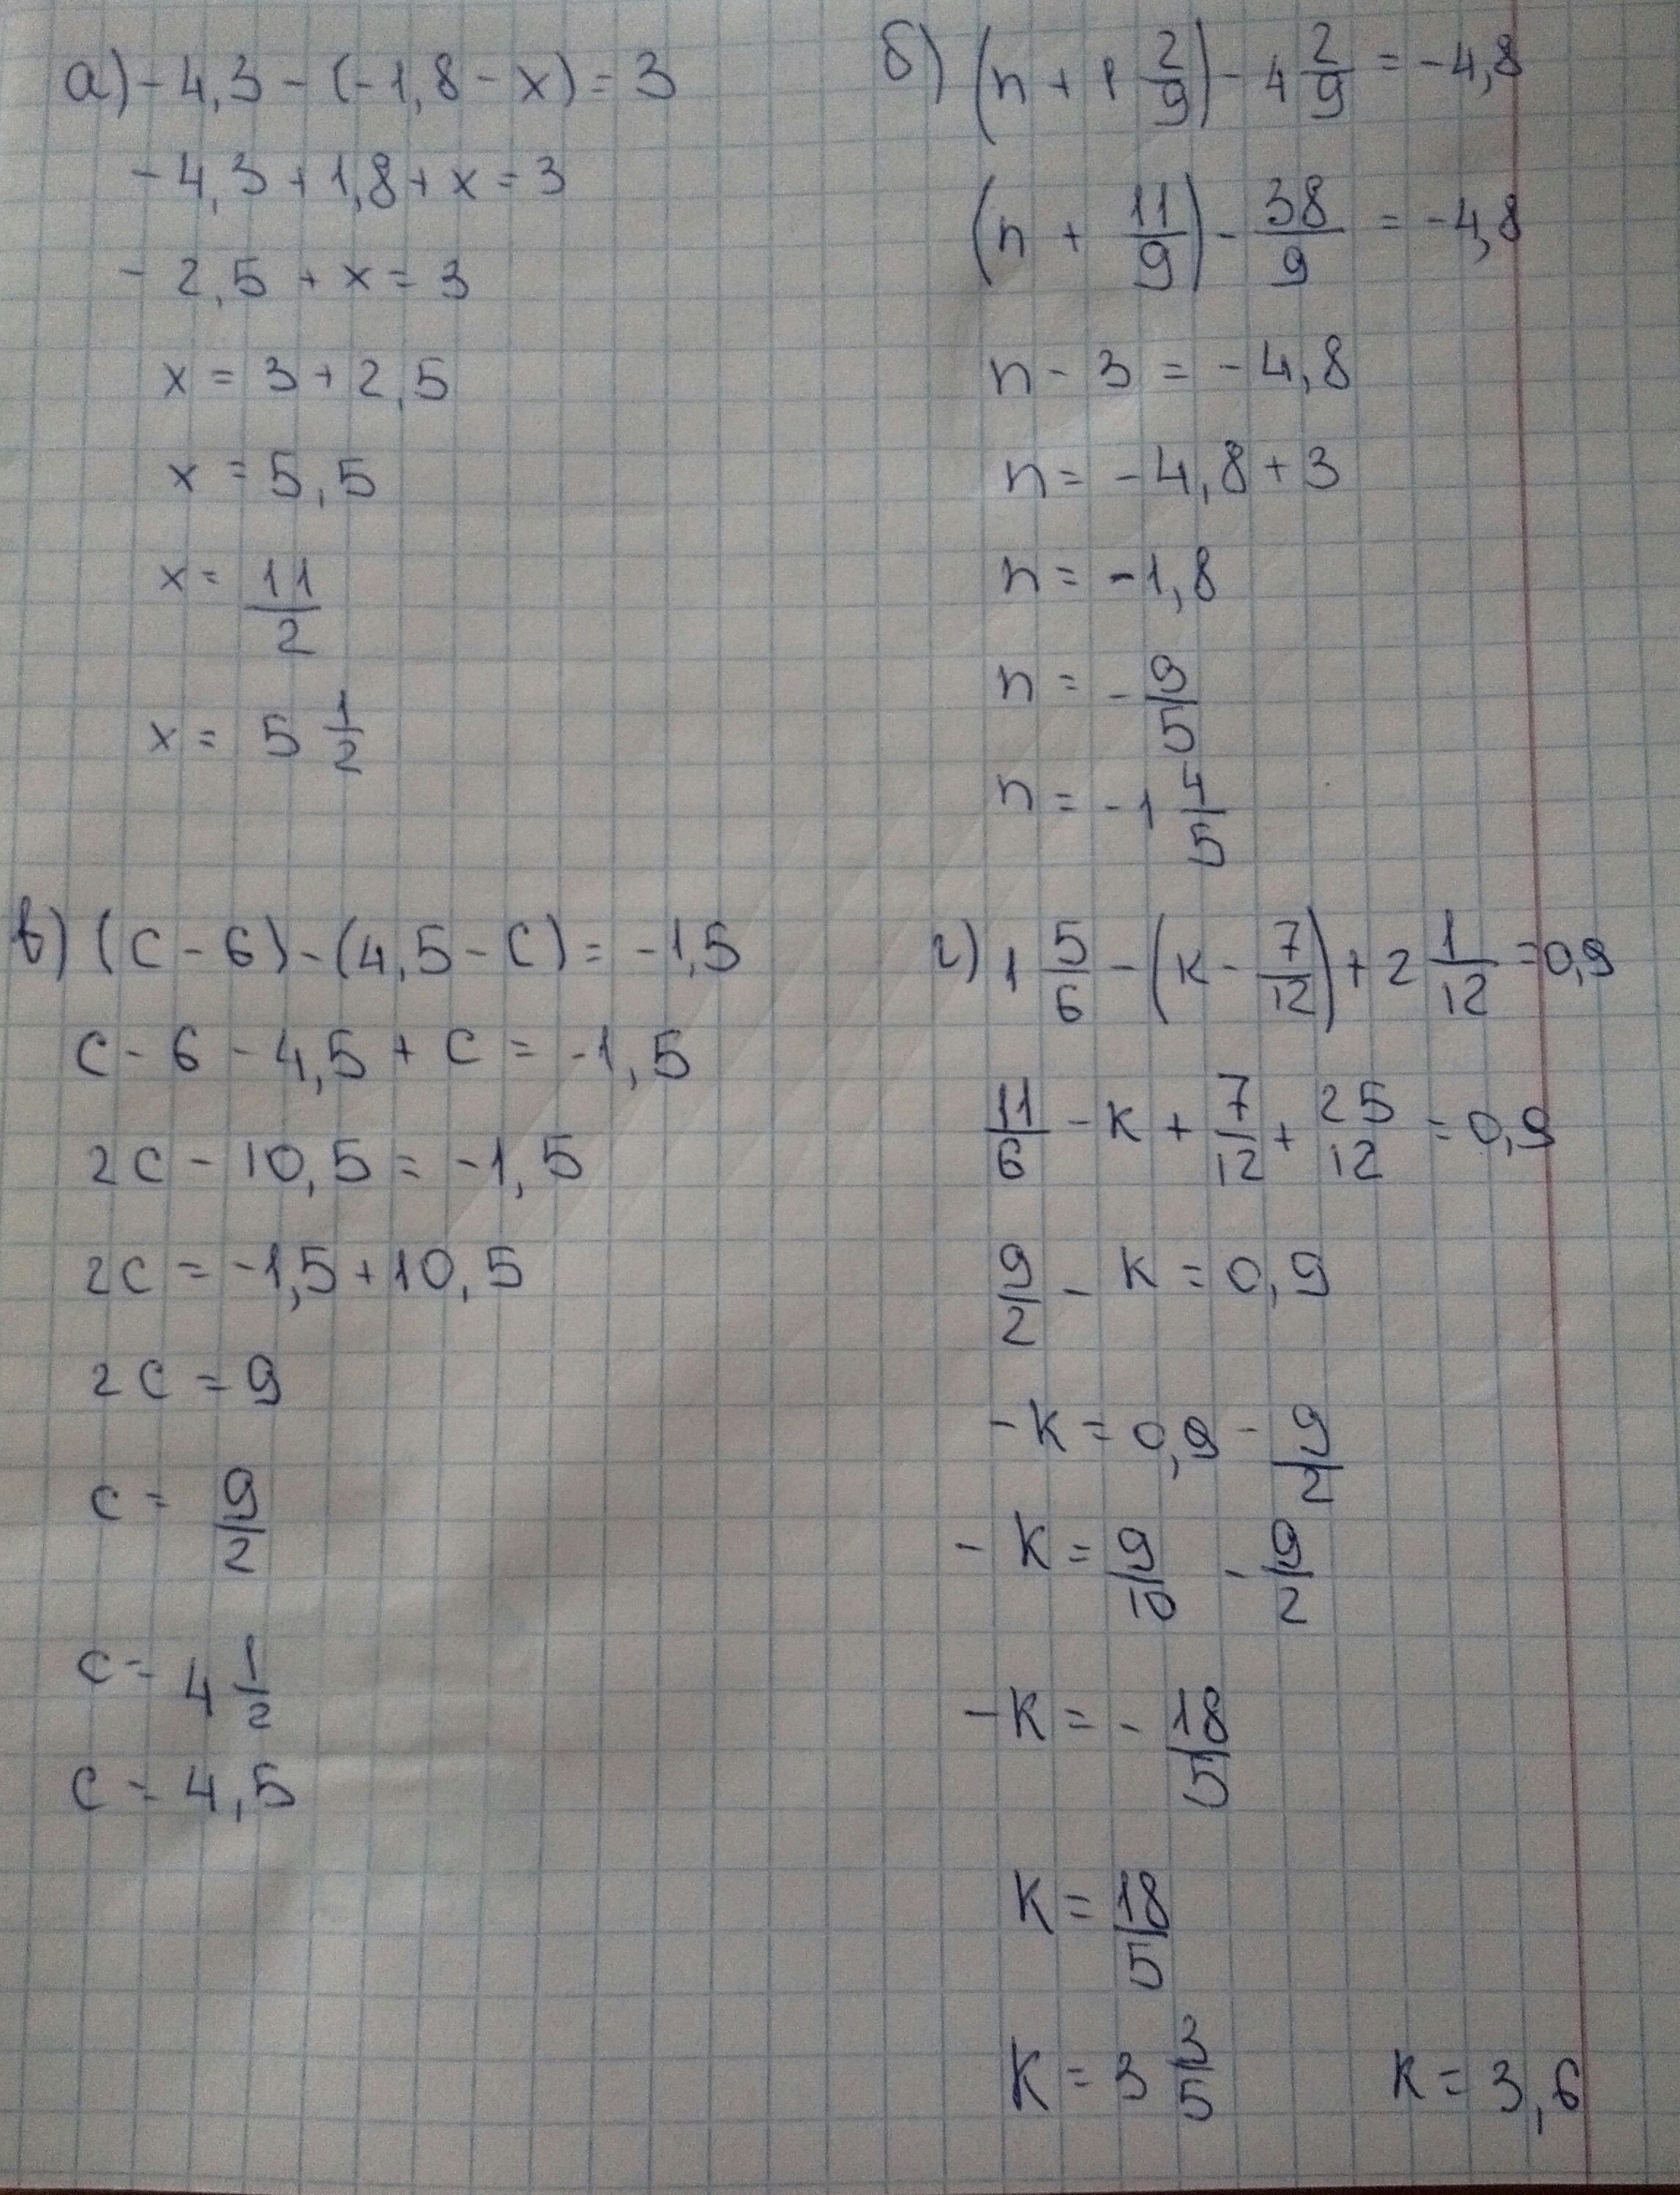 а) -4,3 - (-1,8 - x) = 3
-4,3 + 1,8 + x = 3
-2,5 + x = 3
x = 3 + 2,5
x = 5,5
x = 11/2
x = 5 1/2
б) (n + 1 2/9) - 4 2/9 = -4,8
(n + 11/9) - 38/9 = -4,8
n - 3 = -4,8
n = -4,8 + 3
n = -1,8
n = -9/5
n = -1 4/5
в) (c - 6) - (4,5 - c) = -1,5
c - 6 - 4,5 + c = -1,5
2c - 10,5 = -1,5
2c = -1,5 + 10,5
2c = 9
c = 9/2
c = 4 1/2
c = 4,5
г) 1 5/6 - (k - 7/12) + 2 1/12 = 0,9
11/6 - k + 7/12 + 25/12 = 0,9
9/2 - k = 0,9
-k = 0,9 - 9/2
-k = 9/10 - 9/2
-k = -18/5
k = 18/5
k = 3 3/5 k = 3,6